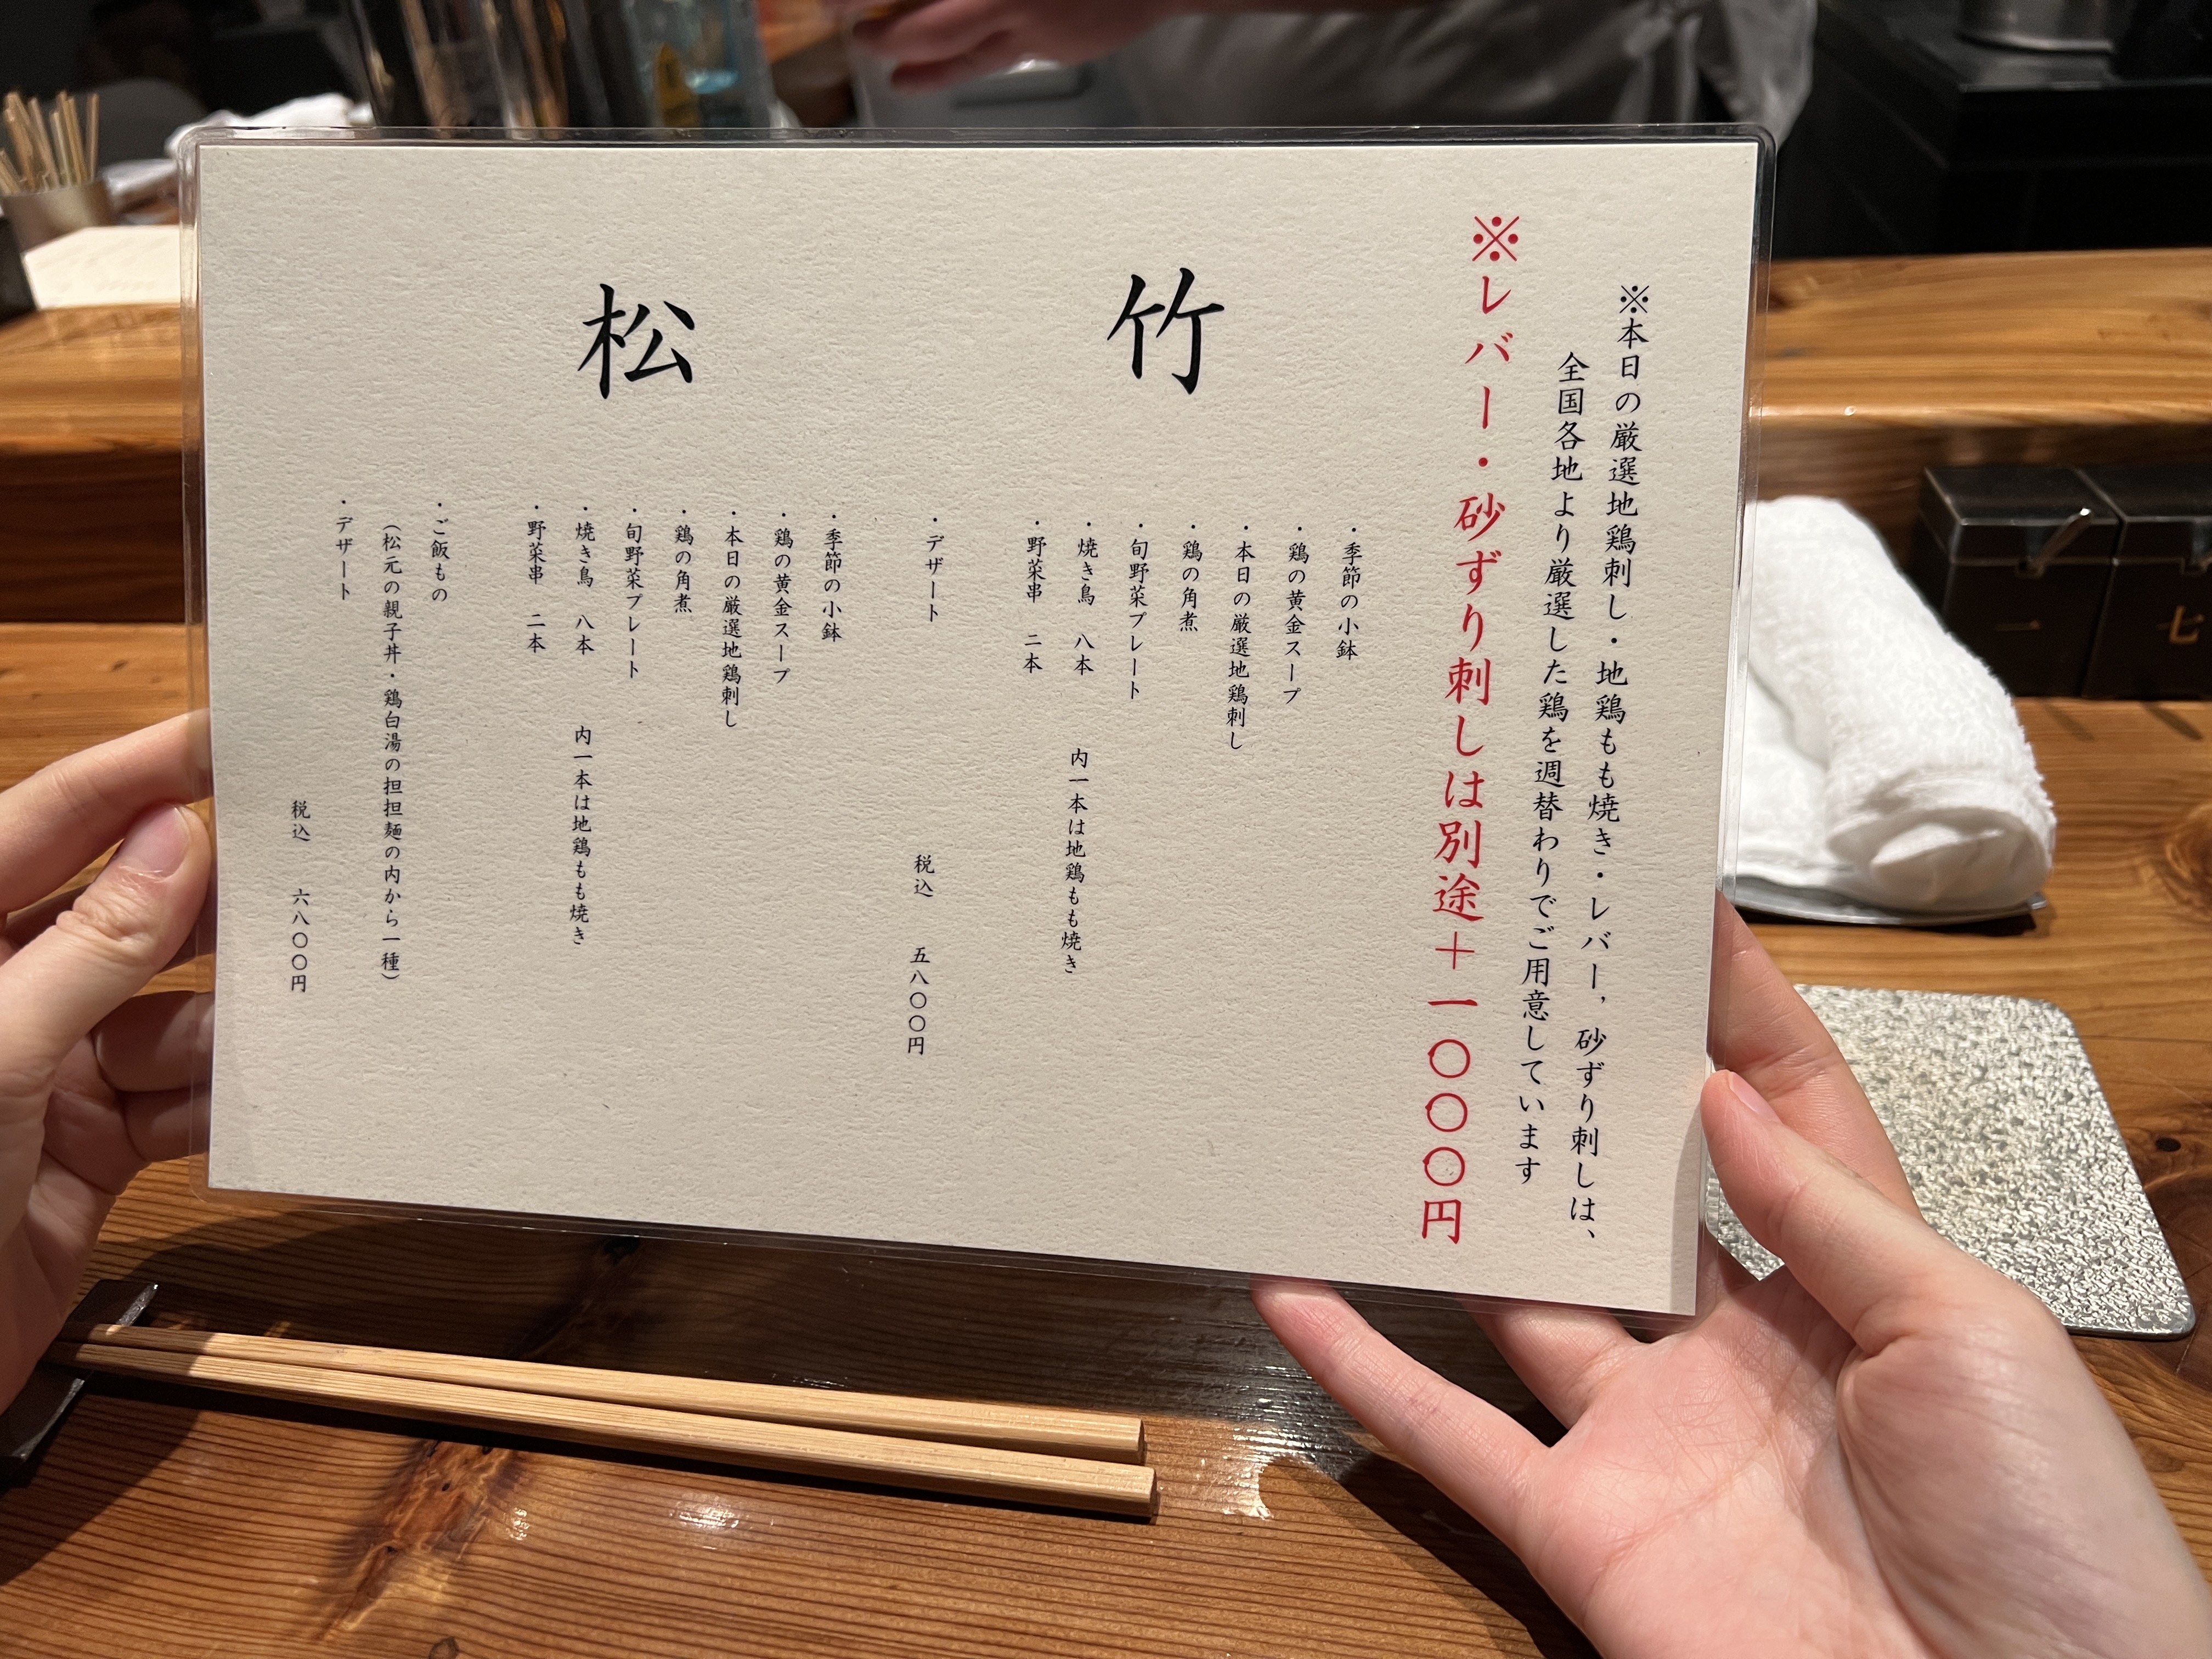 ※本日の厳選地鶏刺し・地鶏もも焼き・レバー，砂ずり刺しは、
全国各地より厳選した鶏を週替わりでご用意しています
※レバー・砂ずり刺しは別途＋一〇〇〇円
竹
・季節の小鉢
・鶏の黄金スープ
・本日の厳選地鶏刺し
・鶏の角煮
・旬野菜プレート
・焼き鳥　八本　　内一本は地鶏もも焼き
・野菜串　二本
・デザート
税込　五八〇〇円
松
・季節の小鉢
・鶏の黄金スープ
・本日の厳選地鶏刺し
・鶏の角煮
・旬野菜プレート
・焼き鳥　八本　　内一本は地鶏もも焼き
・野菜串　二本
・ご飯もの
（松元の親子丼・鶏白湯の担担麺の内から一種）
・デザート
税込　六八〇〇円
一
七